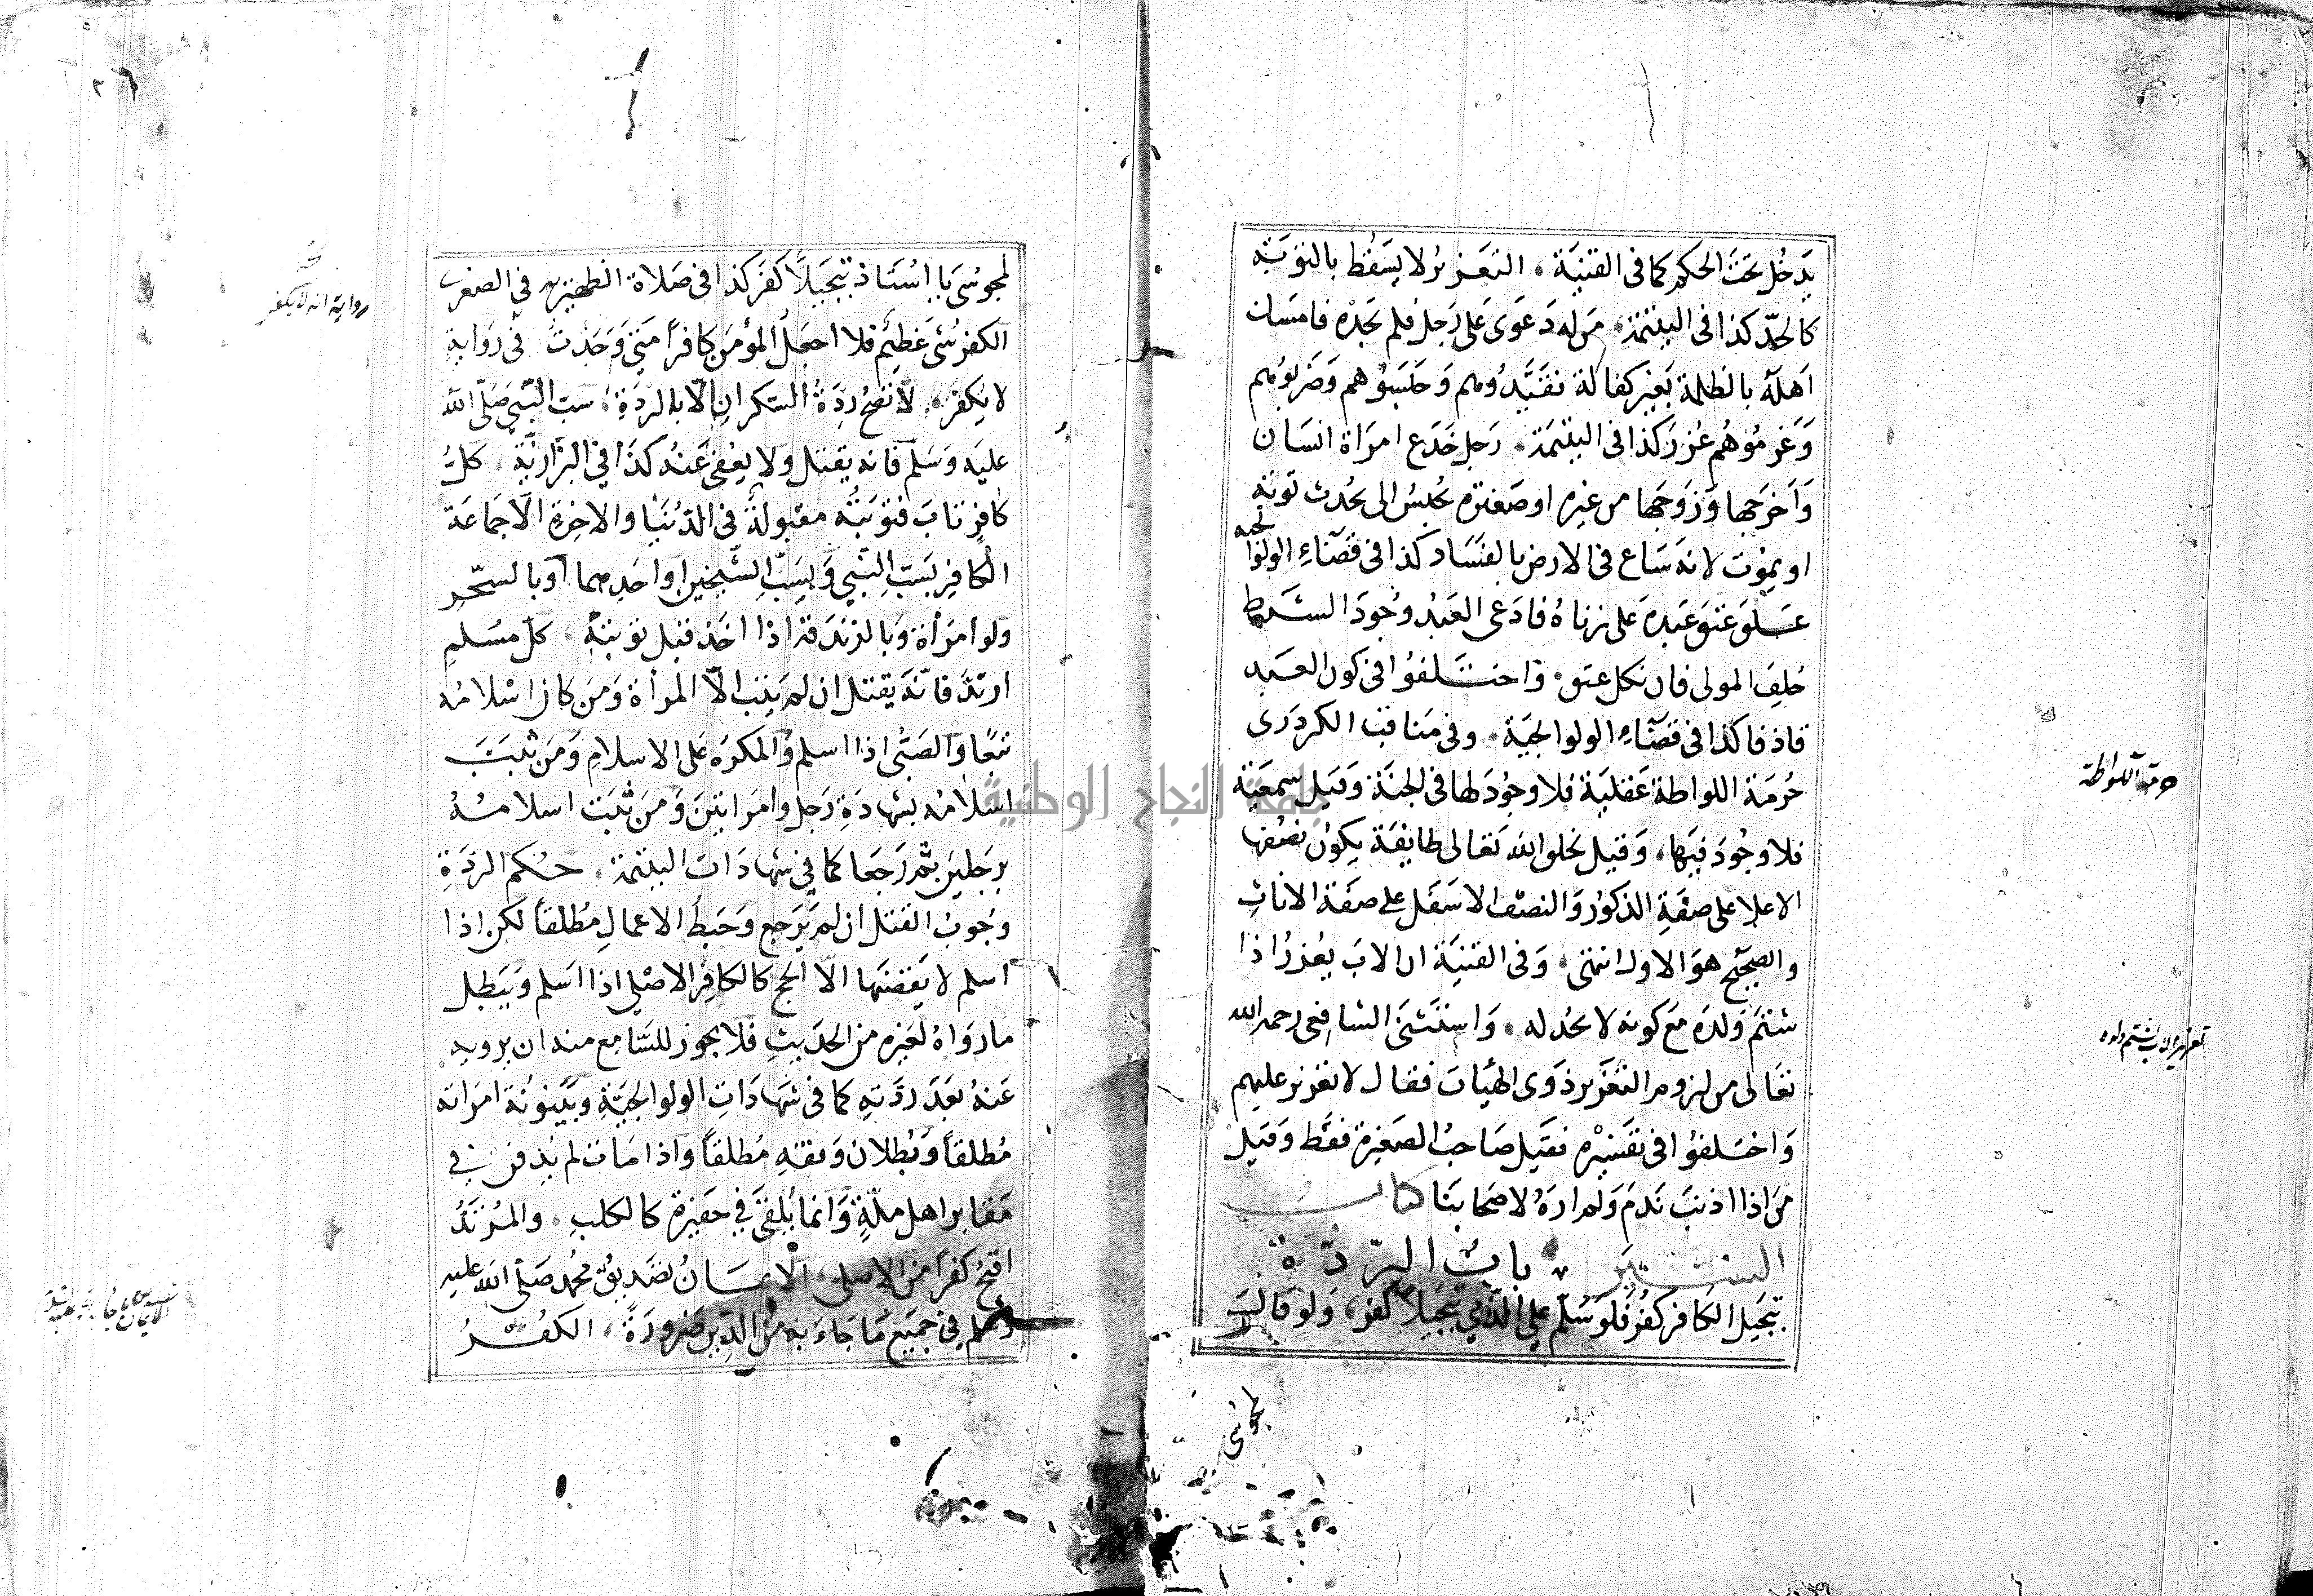 يدخل تحت الحكم كما في القنية، التعزير لا يسقط بالتوبة
كالحدّ كذا في اليتيمة، من له دعوى على رجل فلم يجده فامسك
اهله بالظلمة بغير كفالة فقيدوهم وحبسوهم وضربوهم
وغرموهم عزر كذا في اليتيمة، رجل خدع امراة انسان
واخرجها وزوجها من غيره او صغيرة يحبس الى يحدث توبة
او يموت لانه ساع في الارض بالفساد كذا في قضاء الولوالجية
علق عتق عبده على زناه فادعى العبد وجود الشرط
حلف المولى فان نكل عتق، واختلفوا في كون العبد
قاذفا كذا في قضاء الولوالجية، وفي مناقب الكردرى
حرمة اللواطة عقلية فلا وجود لها في الجنة وقيل سمعية
فلا وجود فيها، وقيل يخلق الله تعالى طايفة يكون نصفها
الاعلا على صفة الذكور والنصف الاسفل على صفة الاناث
والصحيح هو الاول انتهى، وفي القنية ان الاب يعزر اذا
شتم ولده مع كونه لا يحد له، واستثنى الشافعى رحمه الله
تعالى من لزوم التعزير ذوى الهيات فقال لا تعزير عليهم
واختلفوا في تفسيره فقيل صاحب الصغيرة فقط وقيل
من اذا اذنب ندم ولم اره لاصحابنا كتاب
السير، باب الرّدّة
تبجيل الكافر كفر فلو سلّم على الذّمّي تبجيلاً كفر، ولو قال
لمجوسى
حرمة اللواطة
تعزير الاب بشتم ولده
لمجوسى يا استاذ تبجيلاً كفر كذا في صلاة الظهيرية في الصغرى
الكفر شئ عظيم فلا اجعل المؤمن كافرا متى وجدت في رواية
لا يكفر، لا تصح ردة السكران الّا بالردة، سب النبي صلى الله
عليه وسلم فانه يقتل ولا يعفى عنه كذا في البزازية، كل
كافر تاب فتوبته مقبولة في الدنيا والاخرة الّا جماعة
الكافر بسبّ النبي وبسبّ الشيخين او احدهما او بالسحر
ولو امرأة وبالزندقة اذا اخذ قبل توبته، كل مسلم
ارتدّ فانّه يقتل ان لم يتب الّا المرأة ومن كان اسلامه
تبعا والصبى اذا اسلم والمكره على الاسلام ومن ثبت
اسلامه بشهادة رجل وامراتين ومن ثبت اسلامه
برجلين ثم رجعا كما في شهادات اليتيمة، حكم الردة
وجوب القتل ان لم يرجع وحبط الاعمال مطلقاً لكن اذا
اسلم لا يقضيها الّا الحج كالكافر الاصلي اذا اسلم ويبطل
ما رواه لغيره من الحديث فلا يجوز للسّامع منه ان يرويه
عنه بعد ردّته كما في شهادات الولوالجية وبينونة امراته
مطلقاً وبطلان وقفه مطلقاً واذا مات لم يدفن في
مقابر اهل ملّة وانما يلقى في حفيرة كالكلب، والمرتد
اقبح كفرا من الاصلى، الايمان تصديق محمد صلى الله عليه
وسلم في جميع ما جاء به من الدين ضرورة، الكفر
رواية انه لا يكفر